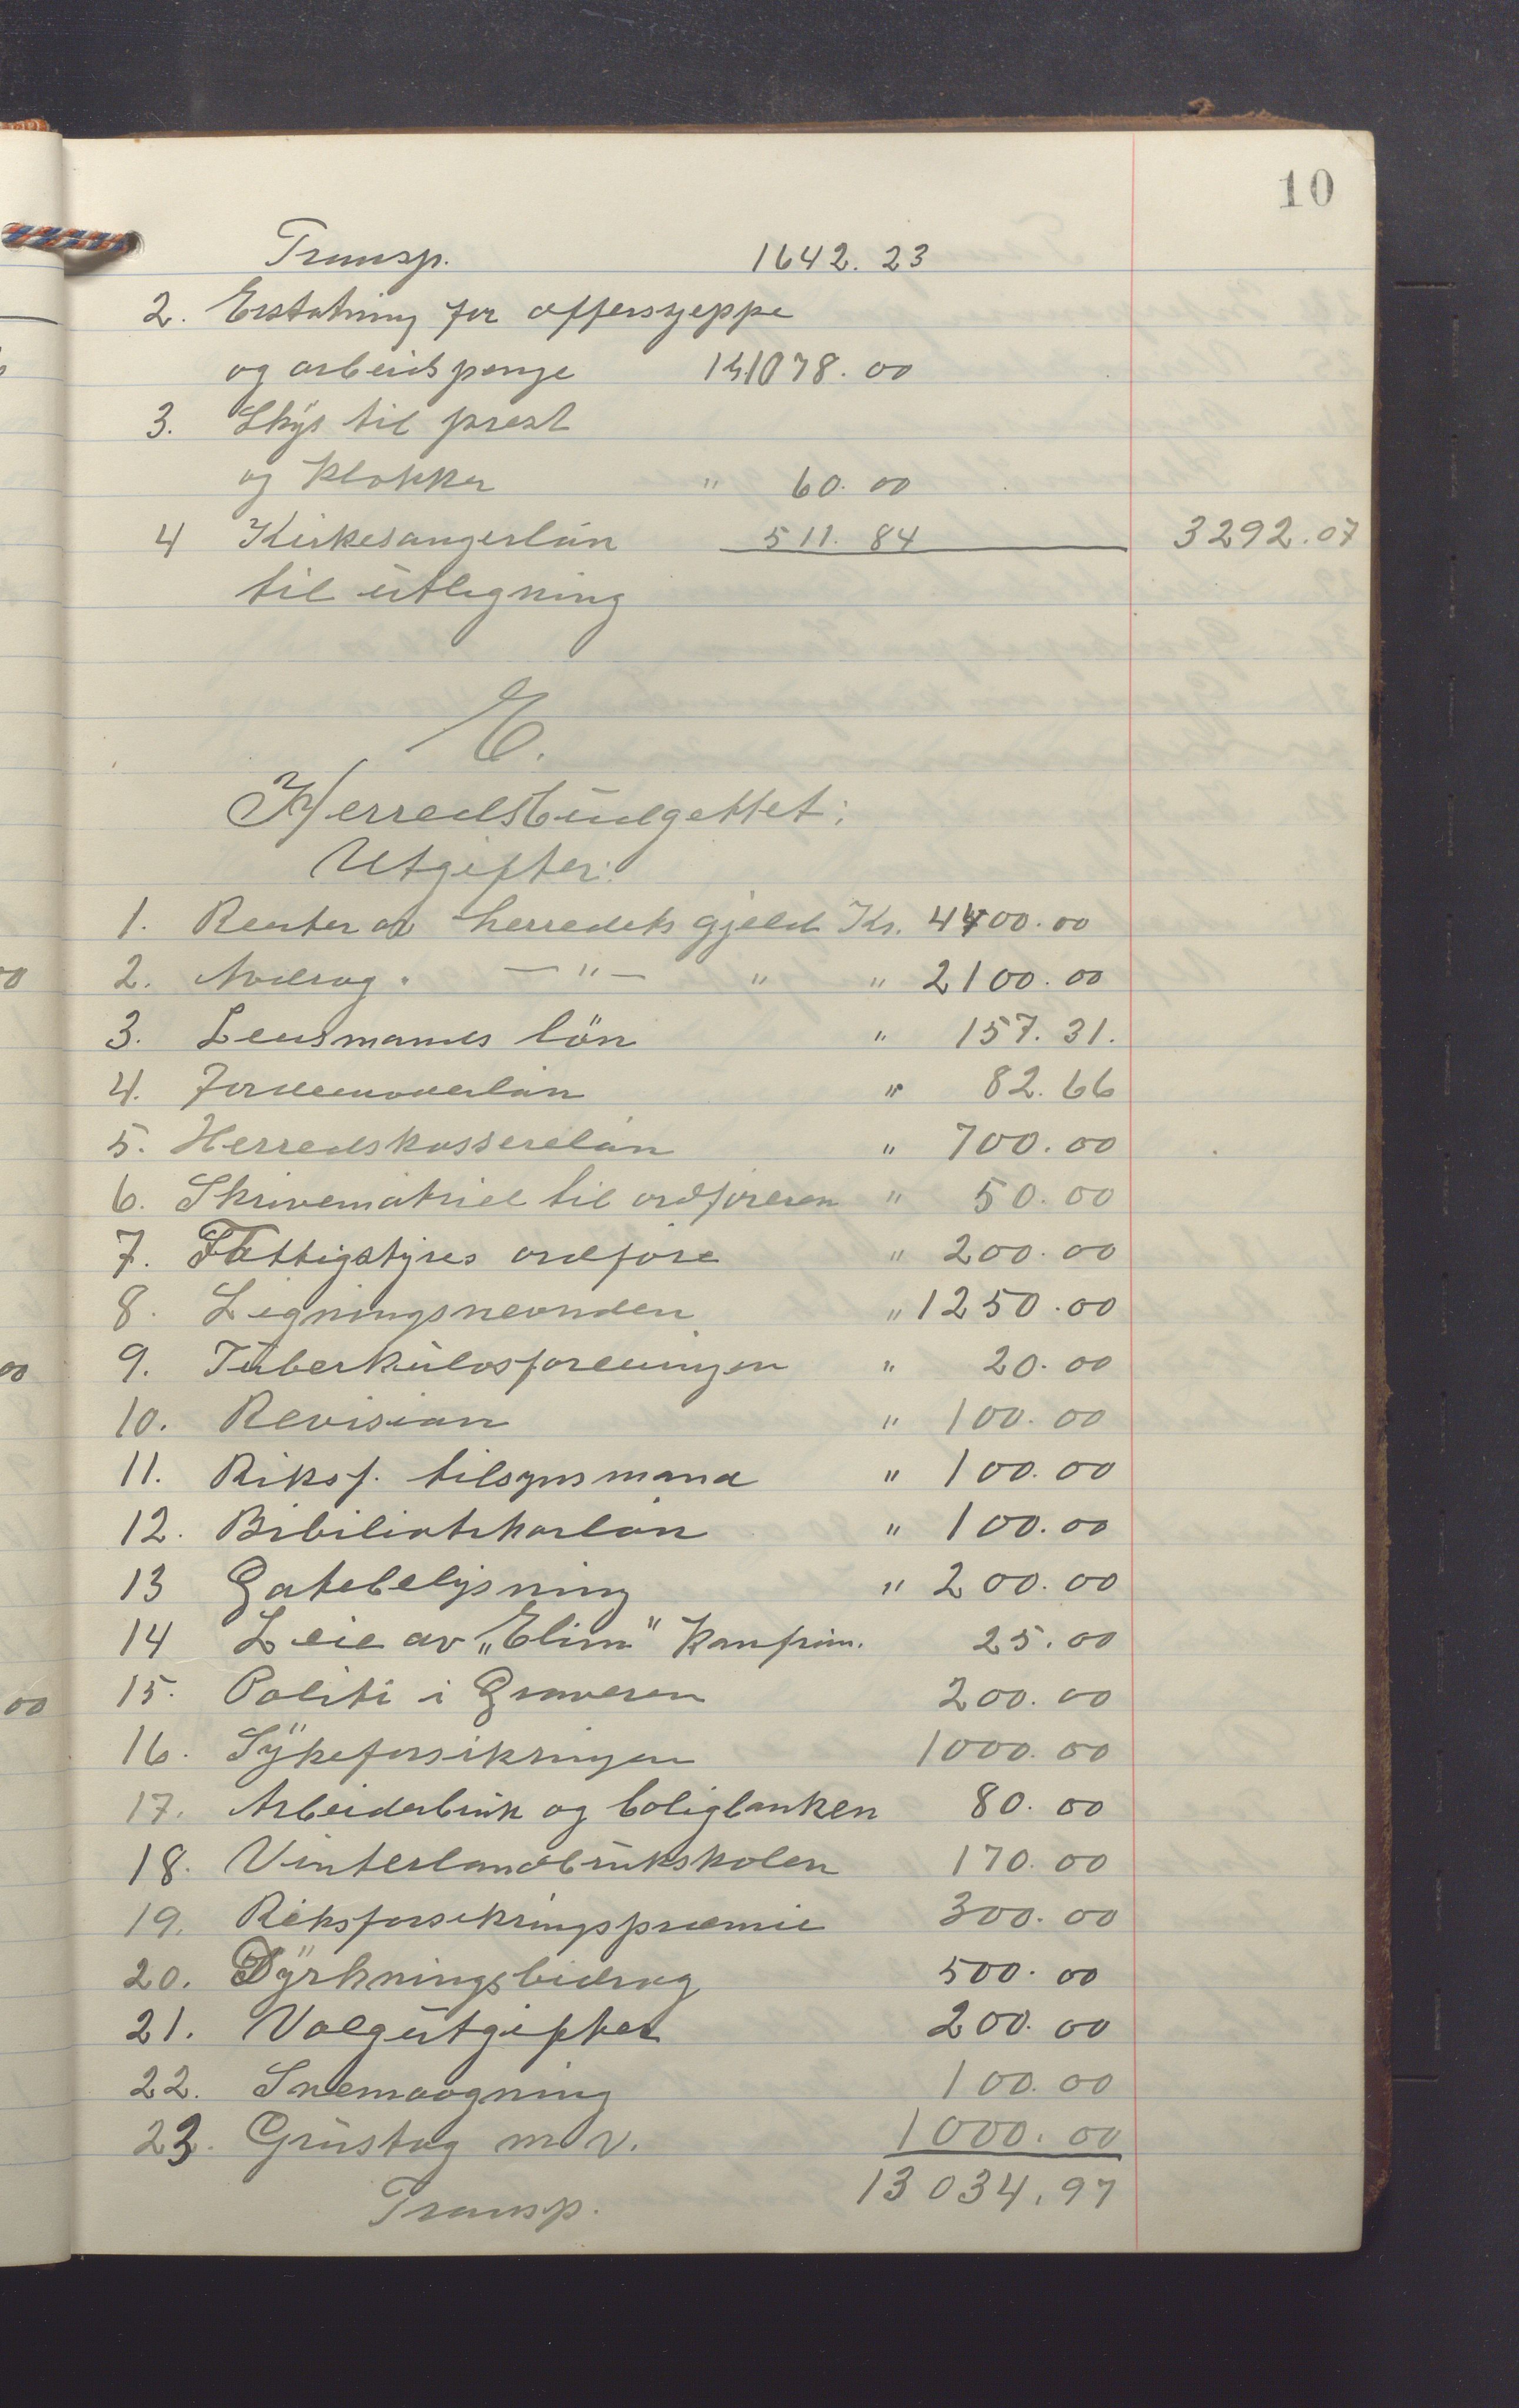 10
Transp. 1642. 23
2. Erstatning for offersyeppe
og arbeidspenge 1078. 00
3. Skÿs til prest
og klokker " 60. 00
4 Kirkesangerlön 511. 84 3292. 07
til utlegning
E.
Herredsbudgettet:
Utgifter:
1. Renter av herredets gjeld Kr. 4400. 00
2. Avdrag " — " — " " 2100. 00
3. Lensmands lön " 157. 31.
4. Jordemoderlön " 82. 66
5. Herredskasserelön " 700. 00
6. Skrivematriel til ordföreren " 50. 00
7. Fattigstyres ordföre " 200. 00
8. Ligningsnevnden " 1250. 00
9. Tuberkulosforeningen " 20. 00
10. Revision " 100. 00
11. Riksf. tilsynsmand " 100. 00
12. Bibiliotekarlön " 100. 00
13 Gatebelysning " 200. 00
14 Leie av „Elim" konfirm. 25. 00
15. Politi i Gravaren 200. 00
16. Sÿkeforsikringen 1000. 00
17. Arbeiderbruk og boligbanken 80. 00
18. Vinterlandbrukskolen 170. 00
19. Riksforsikringspræmie 300. 00
20. Dÿrkningsbidrag 500. 00
21. Valgutgifter 200. 00
22. Snemaagning 100. 00
23. Grustag m. v. 1000. 00
Transp. 13034. 97